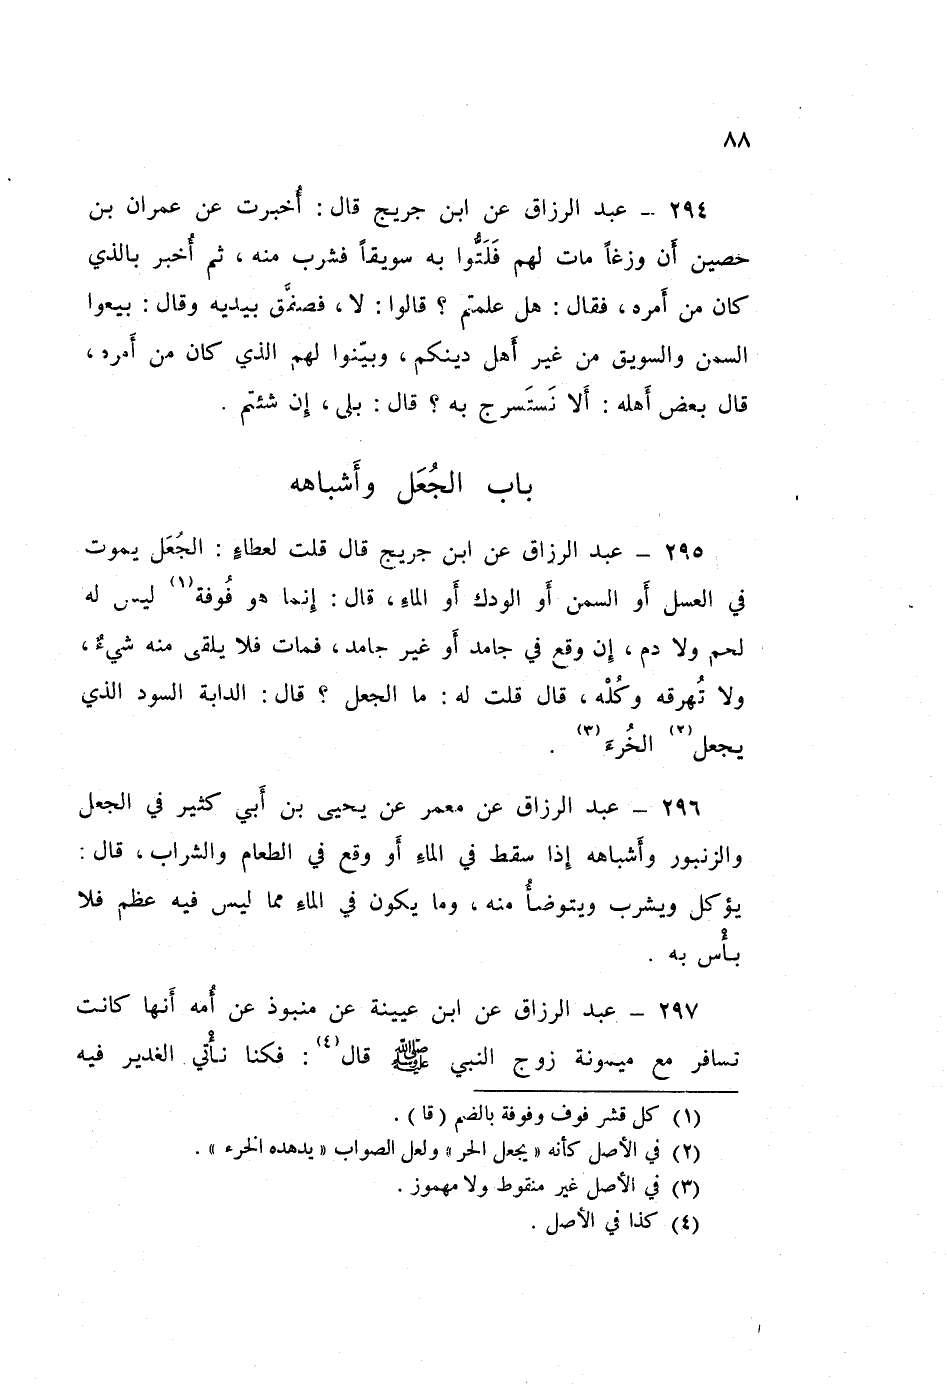 ٨٨
٢٩٤ – عبد الرزاق عن ابن جريج قال : أُخبرت عن عمران بن
حصين أَن وزغاً مات لهم فَلَتُّوا به سويقاً فشرب منه ، ثم أُخبر بالذي
كان من أَمره ، فقال : هل علمتم ؟ قالوا : لا ، فصفَّق بيديه وقال : بيعوا
السمن والسويق من غير أَهل دينكم ، وبيّنوا لهم الذي كان من أَمره ،
قال بعض أَهله : أَلا نَستَسرج به ؟ قال : بلى ، إن شئتم .
باب الجُعَل وأَشباهه
٢٩٥ – عبد الرزاق عن ابن جريج قال قلت لعطاءٍ : الجُعَل يموت
في العسل أَو السمن أَو الودك أَو الماءِ ، قال : إِنما هو فُوفة(١) ليس له
لحم ولا دم ، إِن وقع في جامد أَو غير جامد ، فمات فلا يلقى منه شيءٌ ،
ولا تُهرقه وكُلْه ، قال قلت له : ما الجعل ؟ قال : الدابة السود الذي
يجعل(٢) الخُرءَ(٣) .
٢٩٦ – عبد الرزاق عن معمر عن يحيى بن أَبي كثير في الجعل
والزنبور وأَشباهه إِذا سقط في الماءِ أَو وقع في الطعام والشراب ، قال :
يؤكل ويشرب ويتوضأُ منه ، وما يكون في الماءِ مما ليس فيه عظم فلا
بأْس به .
٢٩٧ – عبد الرزاق عن ابن عيينة عن منبوذ عن أُمه أَنها كانت
تسافر مع ميمونة زوج النبي ﷺ قال(٤) : فكنا نأْتي الغدير فيه
(١) كل قشر فوف وفوفة بالضم ( قا ) .
(٢) في الأصل كأنه « يجعل الحر » ولعل الصواب « يدهده الخرء » .
(٣) في الأصل غير منقوط ولا مهموز .
(٤) كذا في الأصل .